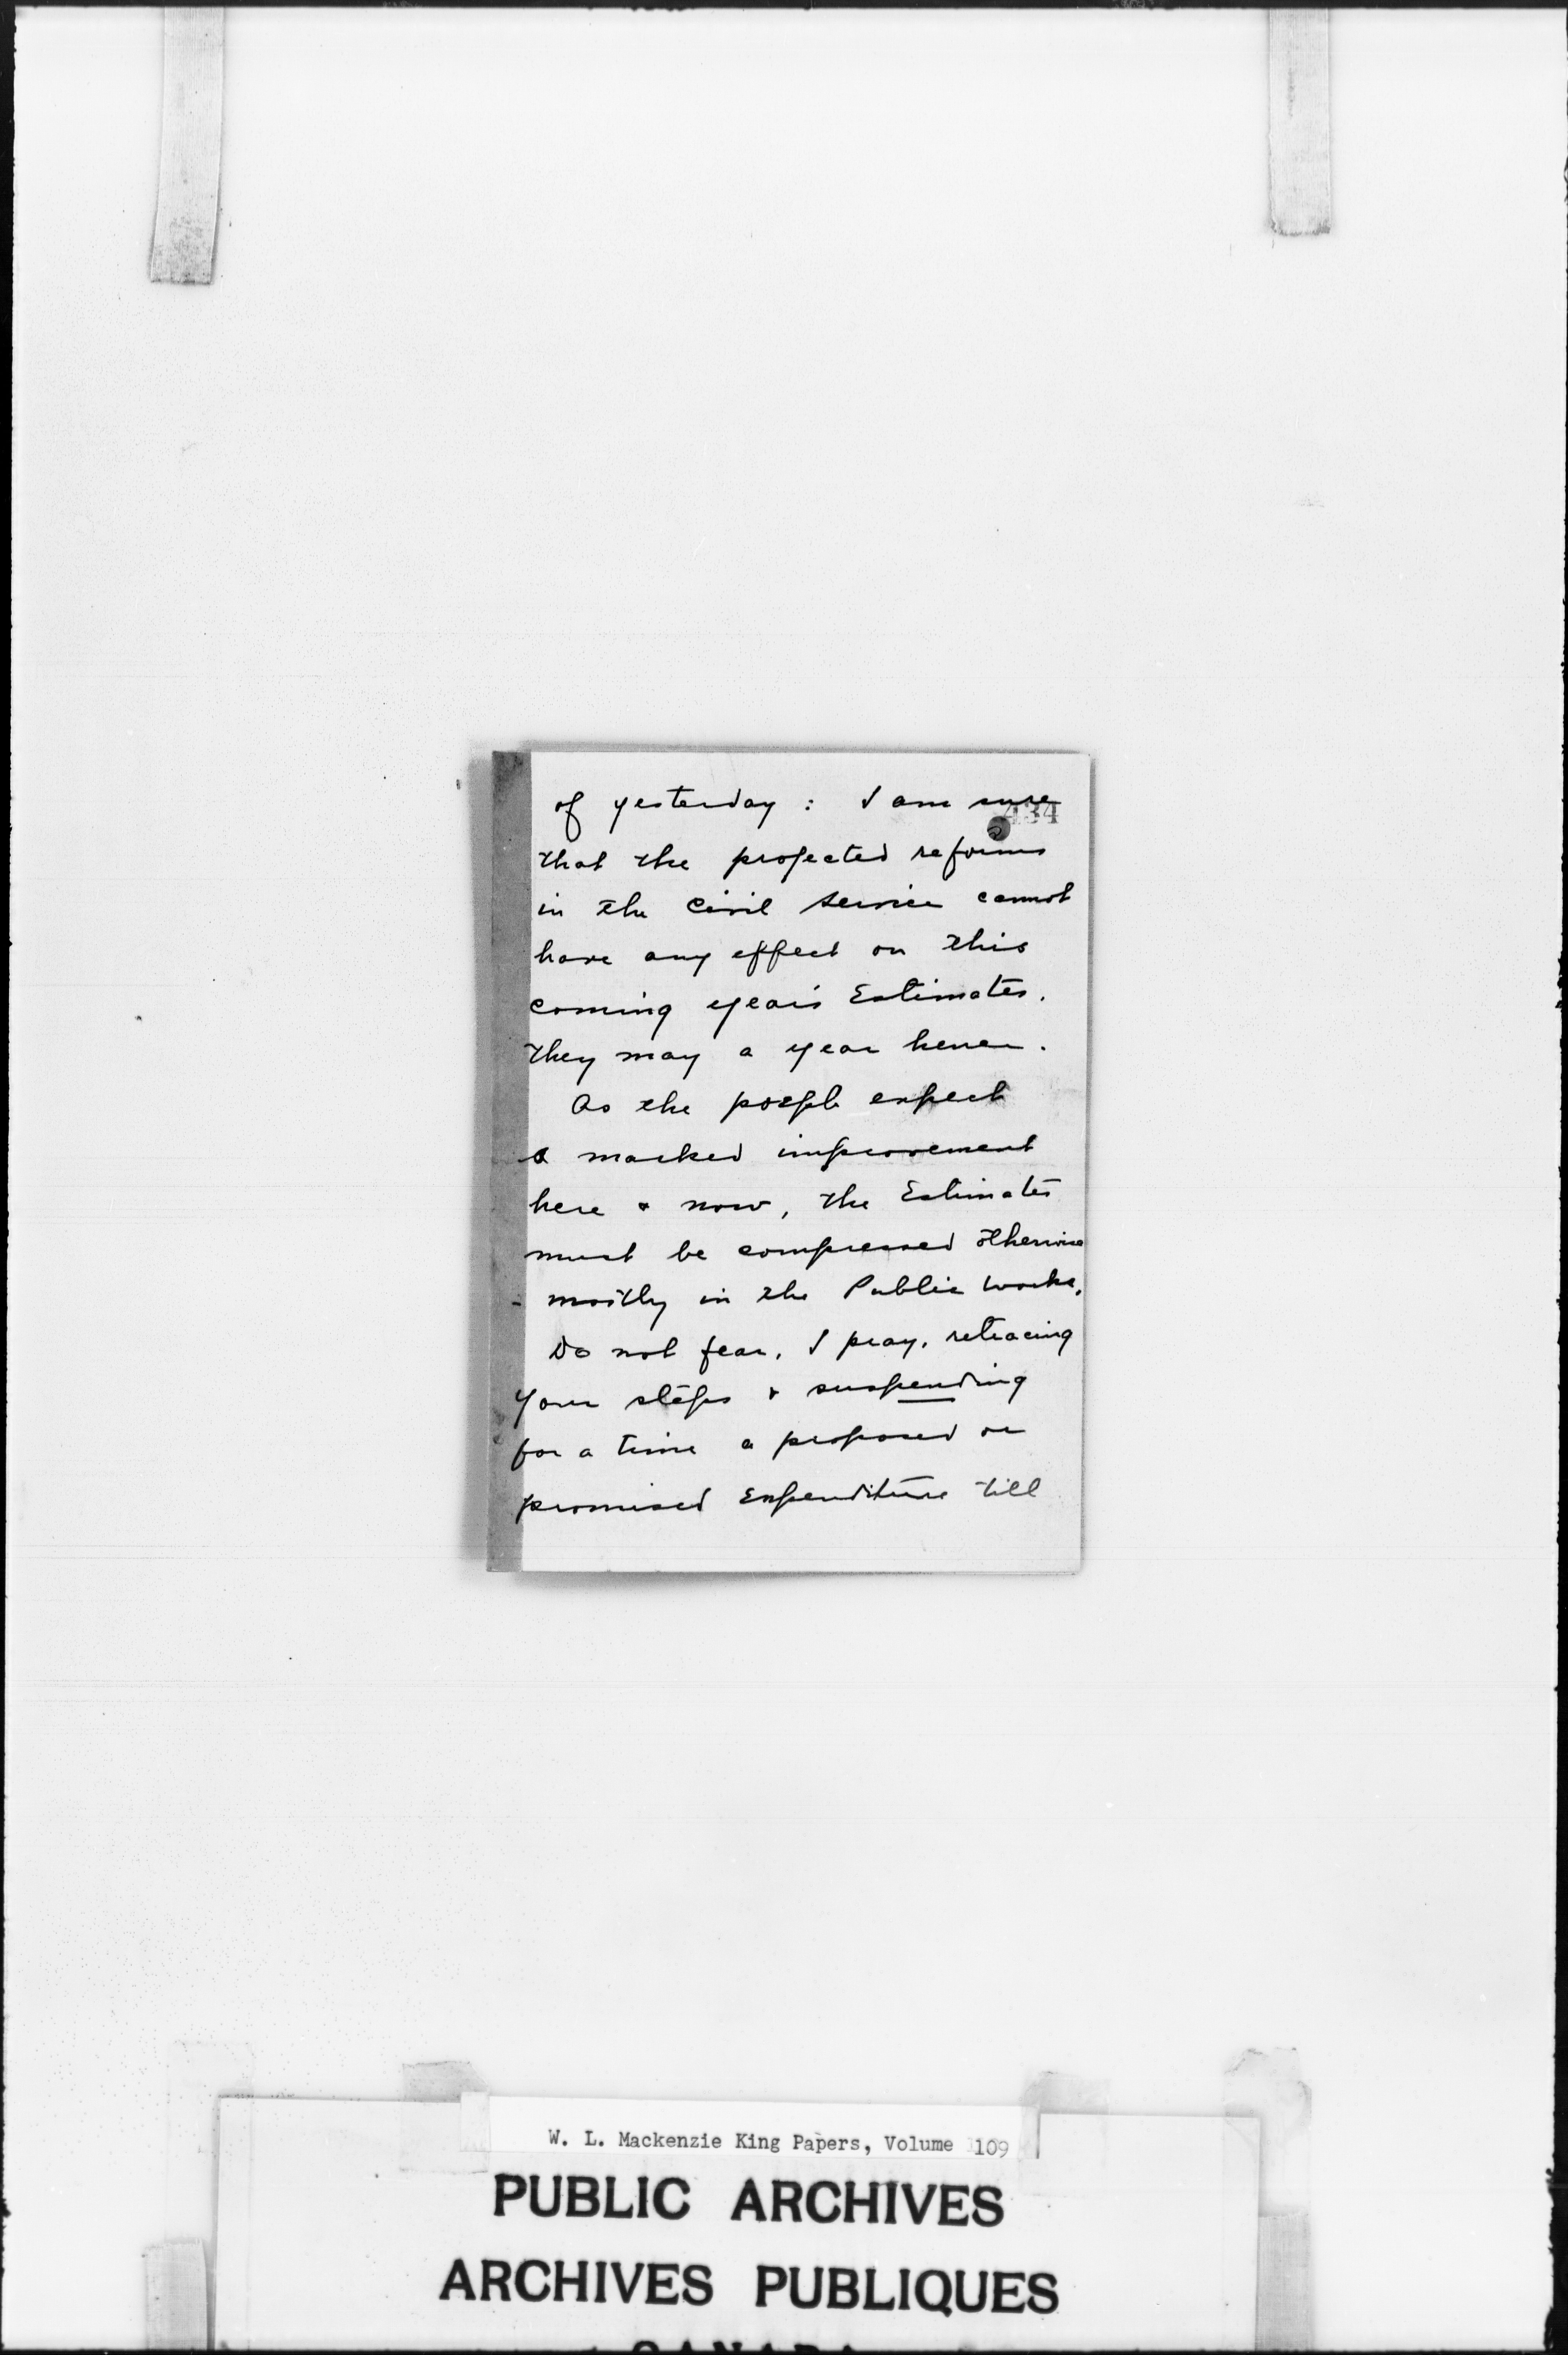 of yesterday : I am sure
434
that the projected reforms
in the Civil Service cannot
have any effect on this
coming year's Estimates.
They may a year hence.
As the people expect
a marked improvement
here & now, the Estimates
must be compressed otherwise
- mostly in the Public Works.
Do not fear, I pray, retracing
your steps & suspending
for a time a proposed or
promised Expenditure till
W. L. Mackenzie King Papers, Volume 109
PUBLIC ARCHIVES
ARCHIVES PUBLIQUES
CANADA